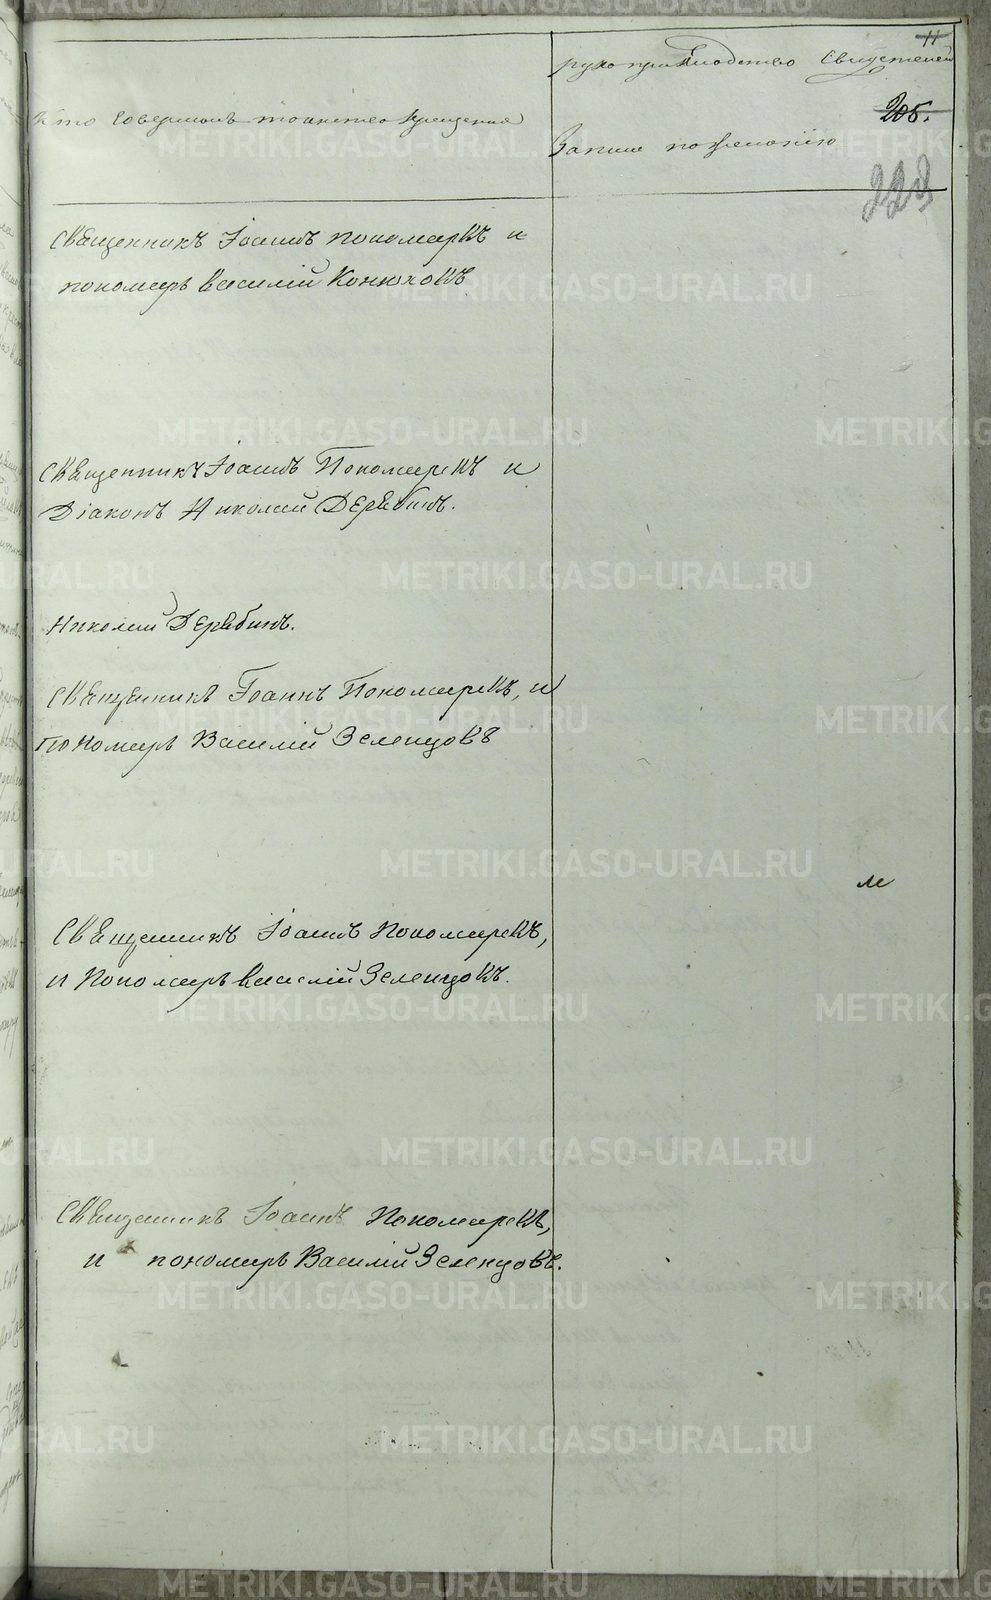 11
рукоприкладство Свидетелей
205.
Кто Совершалъ таинство крещения
Записи по желанію
223
Священникъ Іоаннъ Пономаревъ и
пономарь Василій Конюховъ
Священникъ Іоаннъ Пономаревъ и
Діаконъ Николай Дерябинъ.
Николай Дерябинъ.
Священникъ Іоаннъ Пономаревъ, и
пономарь Василій Зеленцовъ
Священникъ Іоаннъ Пономаревъ,
и Пономарь Василій Зеленцовъ.
Священникъ Іоаннъ Пономаревъ,
и пономарь Василій Зеленцовъ.
METRIKI.GASO-URAL.RU